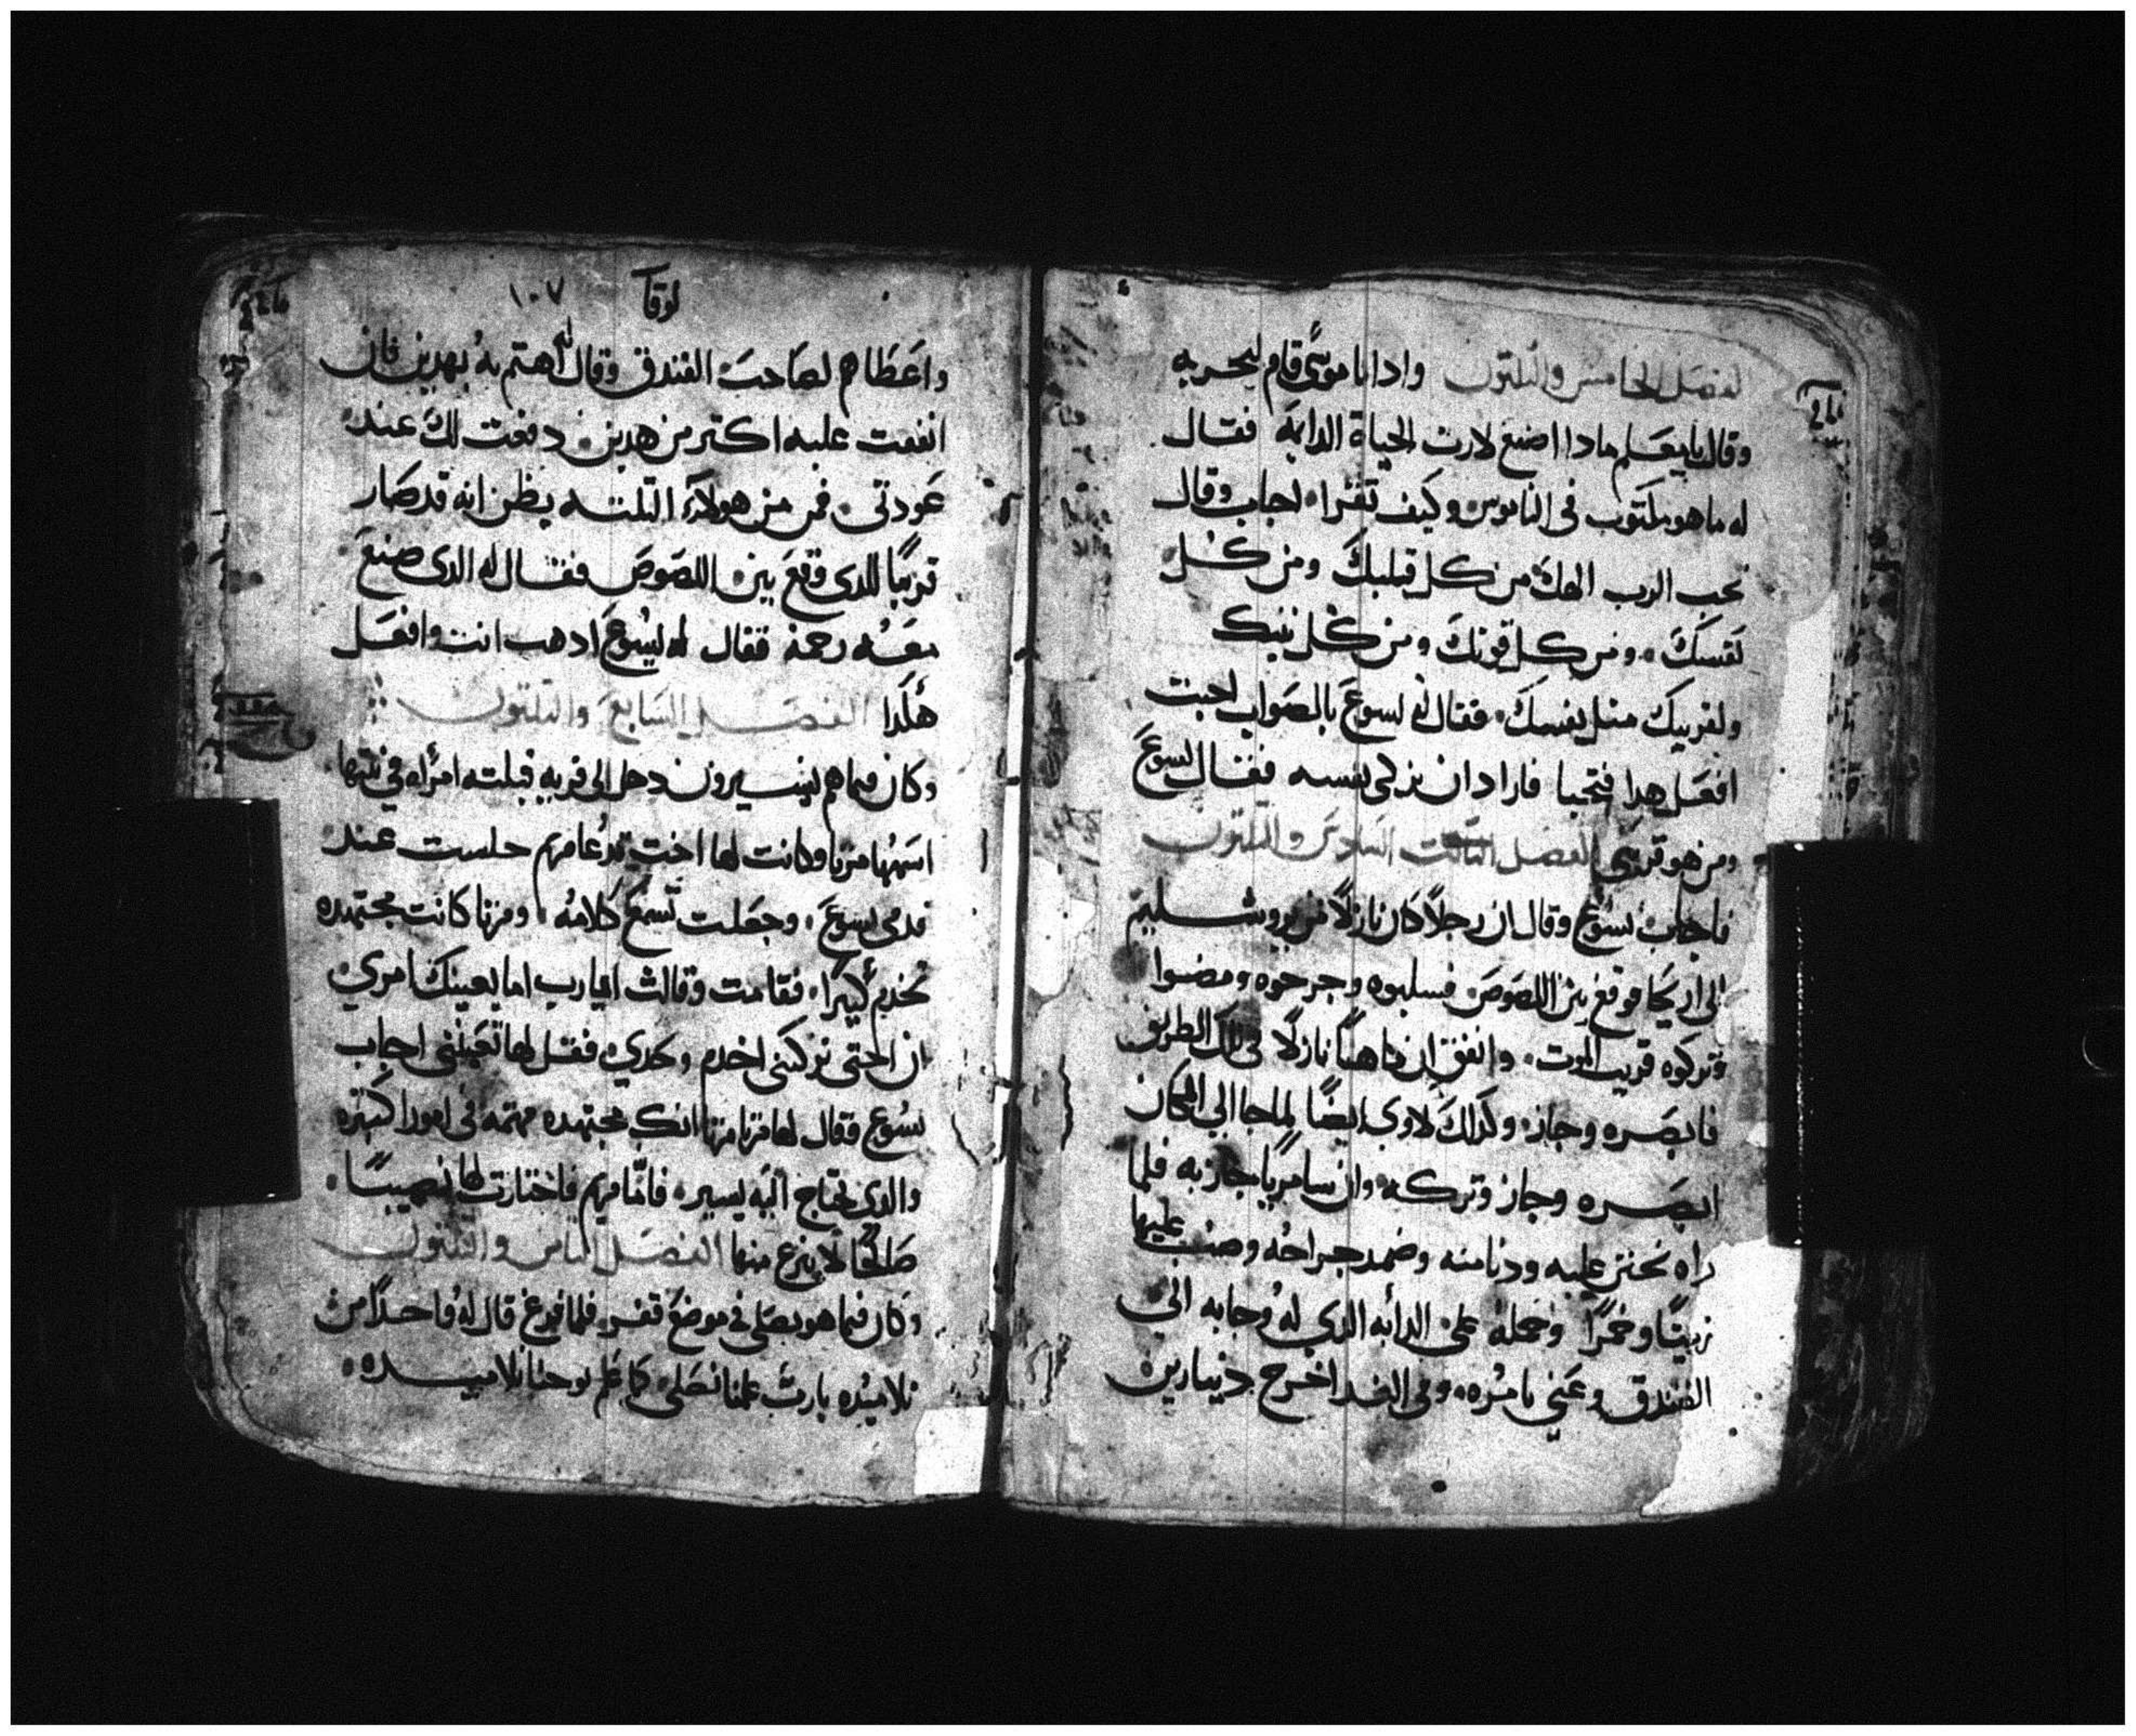 الفصل الخامس والتلتون وادا ناموسى قام ليجربه
وقال يا معلم مادا اصنع لارت الحياة الدايمة فقال
له ما هو مكتوب فى الناموس وكيف تقرا اجاب وقال
تحب الرب الهك من كل قلبك ومن كل
نفسك ومن كل قوتك ومن كل نيتك
ولقريبك متل نفسك فقال له يسوع بالصواب اجبت
افعل هدا فتحيا فاراد ان يزكى نفسه فقال ليسوع
ومن هو قريبى الفصل التالت السادس والتلتون
فاجاب يسوع وقال ان رجلاً كان نازلاً من يروشليم
الى اريحا فوقع بين اللصوص فسلبوه وجرحوه ومضوا
وتركوه قريب الموت واتفق ان كاهناً نازلاً فى تلك الطريق
فابصره وجاز وكدلك لاوى ايضاً لما جا الى المكان
ابصره وجاز وتركه وان سامرياً جاز به فلما
راه تحنن عليه ودنا منه وضمد جراحه وصب عليها
زيتاً وخمراً وحمله على الدابه الدي له وجابه الى
الفندق وعنى بامره وفى الغد اخرج دينارين
لوقا ١٠٧
واعطاهم لصاحب الفندق وقال له اهتم به بهدين فان
انفقت عليه اكتر من هدين دفعت لك عند
عودتى فمن من هولاء التلته يظن انه قد صار
قريباً للدى وقع بين اللصوص فقال له الدى صنع
معه رحمة فقال له يسوع ادهب انت وافعل
هكدا الفصل السابع والتلتون
وكان فيما هم يسيرون دخل الى قريه فقبلته امراه فى بيتها
اسمها مرتا وكانت لها اخت تدعا مريم جلست عند
قدمى يسوع وجعلت تسمع كلامه ومرتا كانت مجتهده
تخدم كثيراً فقامت وقالت يارب اما يعينك امرى
ان اختى تركتنى اخدم وحدى فقل لها تعيننى اجاب
يسوع فقال لها مرتا مرتا انك مجتهده مهتمه فى امورا كتيره
والدى تحتاج اليه يسير فاما مريم فاختارت لها نصيباً
صالحاً لا ينزع منها الفصل التامن والتلتون
وكان فيما هو يصلى فى موضع قفر فلما فرغ قال له واحداً من
تلاميده يارب علمنا نصلى كما علم يوحنا تلاميده